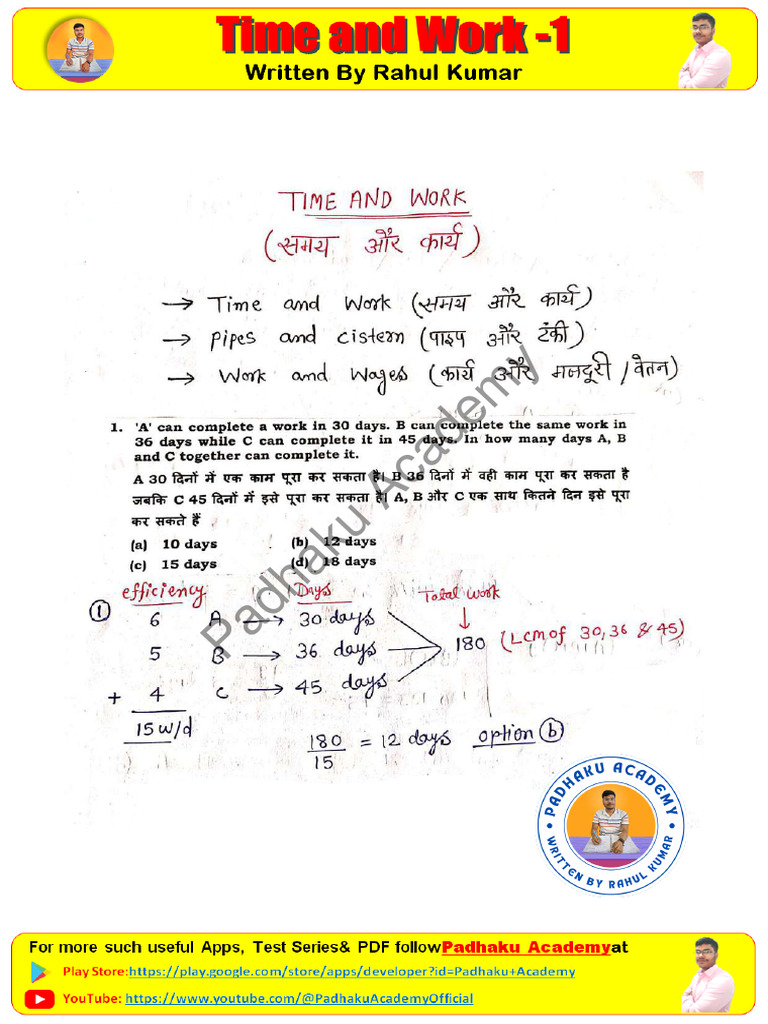 Time and Work -1
Written By Rahul Kumar
TIME AND WORK
(समय और कार्य)
→ Time and Work (समय और कार्य)
→ Pipes and Cistern (पाइप और टंकी)
→ Work and Wages (कार्य और मजदूरी / वेतन)
1. 'A' can complete a work in 30 days. B can complete the same work in
36 days while C can complete it in 45 days. In how many days A, B
and C together can complete it.
A 30 दिनों में एक काम पूरा कर सकता है। B 36 दिनों में वही काम पूरा कर सकता है
जबकि C 45 दिनों में इसे पूरा कर सकता है। A, B और C एक साथ कितने दिन इसे पूरा
कर सकते हैं
(a) 10 days (b) 12 days
(c) 15 days (d) 18 days
efficiency Days Total Work
① 6 A → 30 days
5 B → 36 days 180 (LCM of 30, 36 & 45)
+ 4 C → 45 days
15 W/d
180/15 = 12 days option ⓑ
Padhaku Academy
PADHAKU ACADEMY
WRITTEN BY RAHUL KUMAR
For more such useful Apps, Test Series& PDF followPadhaku Academyat
Play Store:https://play.google.com/store/apps/developer?id=Padhaku+Academy
YouTube: https://www.youtube.com/@PadhakuAcademyOfficial